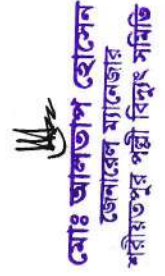 মোঃ আলতাপ হোসেন
জেনারেল ম্যানেজার
শরীয়তপুর পল্লী বিদ্যুৎ সমিতি